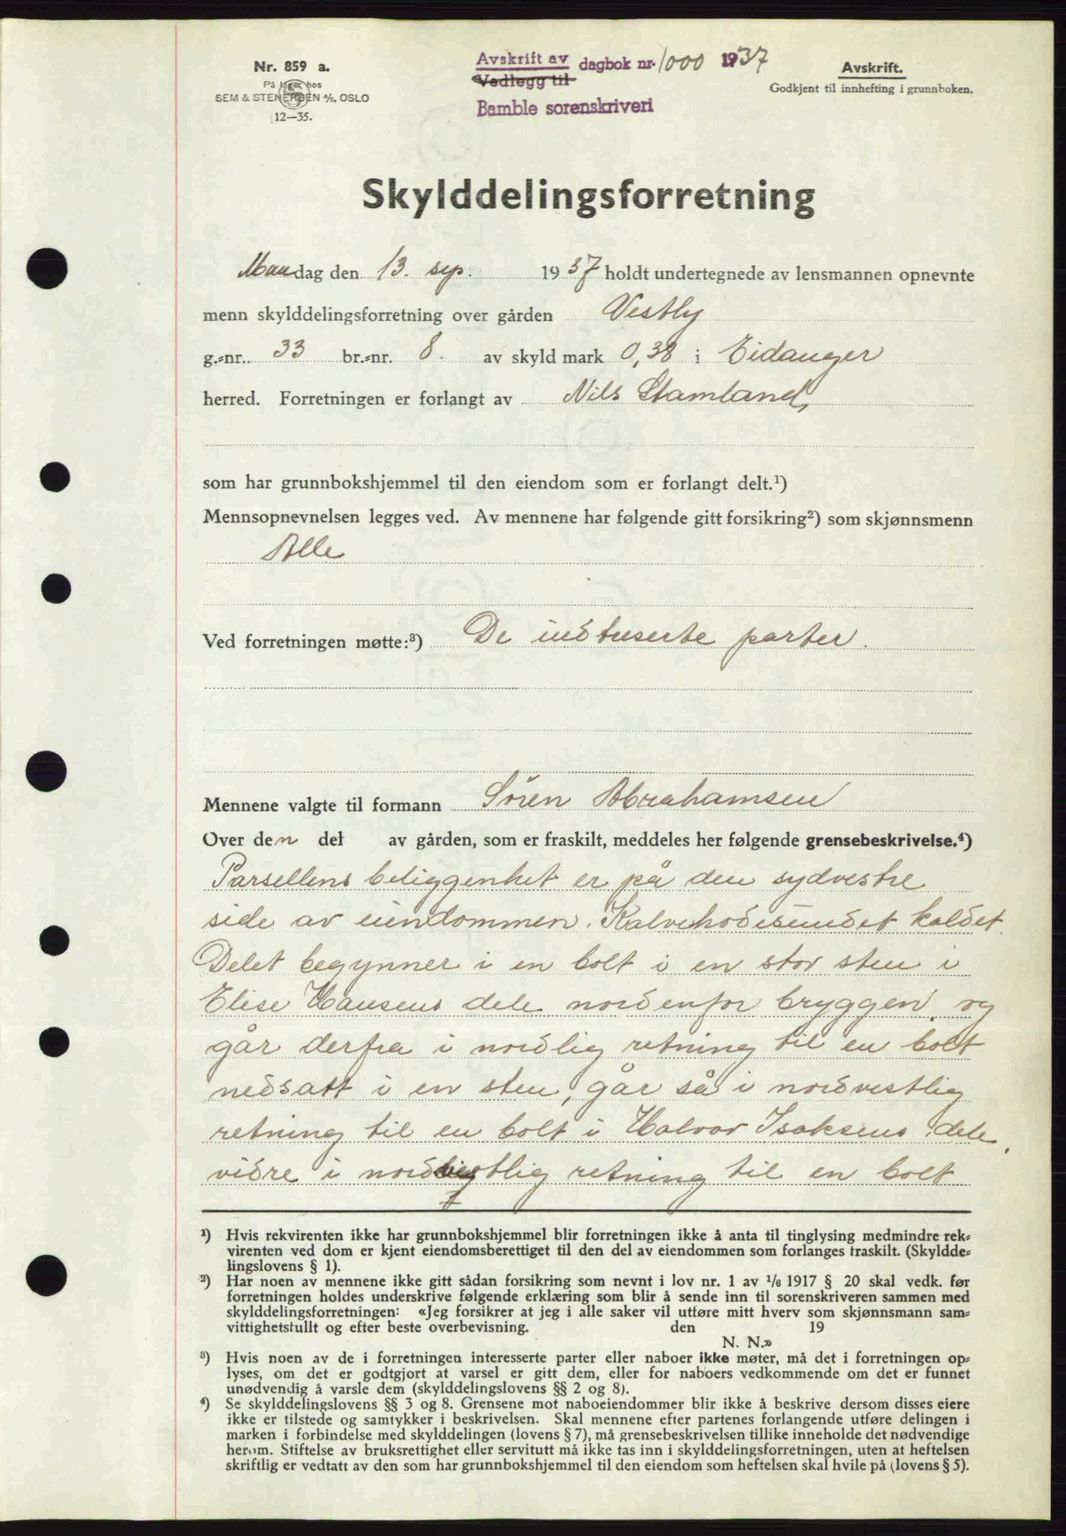 Nr. 859 a.
På lager hos
SEM & STENERSEN A/S. OSLO
12—35.
Avskrift av dagbok nr. 1000 1937
Vedlegg til
Bamble sorenskriveri
Avskrift.
Godkjent til innhefting i grunnboken.
Skylddelingsforretning
Mandag den 13. sep. 1937 holdt undertegnede av lensmannen opnevnte
menn skylddelingsforretning over gården Vestby
g.-nr. 33 br.-nr. 8. av skyld mark 0,38 i Eidanger
herred. Forretningen er forlangt av Nils Stamland,
som har grunnbokshjemmel til den eiendom som er forlangt delt.¹)
Mennsopnevnelsen legges ved. Av mennene har følgende gitt forsikring²) som skjønnsmenn
Alle
Ved forretningen møtte:³) De indtuserte parter.
Mennene valgte til formann Sören Abrahamsen
Over den del av gården, som er fraskilt, meddeles her følgende grensebeskrivelse.⁴)
Parsellens beliggenhet er på den sydvestre
side av eiendommen. Kalvehodesundet kaldet.
Delet begynner i en bolt i en stor sten i
Elise Hansens dele nordenfor bryggen, og
går derfra i nordlig retning til en bolt
nedsatt i en sten, går så i nordvestlig
retning til en bolt i Halvor Isaksens dele,
vidre i nordvestlig retning til en bolt
¹) Hvis rekvirenten ikke har grunnbokshjemmel blir forretningen ikke å anta til tinglysing medmindre rek-
virenten ved dom er kjent eiendomsberettiget til den del av eiendommen som forlanges fraskilt. (Skyldde-
lingslovens § 1).
²) Har noen av mennene ikke gitt sådan forsikring som nevnt i lov nr. 1 av 1/6 1917 § 20 skal vedk. før
forretningen holdes underskrive følgende erklæring som blir å sende inn til sorenskriveren sammen med
skylddelingsforretningen: «Jeg forsikrer at jeg i alle saker vil utføre mitt hverv som skjønnsmann sam-
vittighetsfullt og efter beste overbevisning. den 19
N. N.»
³) Hvis noen av de i forretningen interesserte parter eller naboer ikke møter, må det i forretningen op-
lyses, om det er godtgjort at varsel er gitt dem, eller for naboers vedkommende om det er funnet
unødvendig å varsle dem (skylddelingslovens §§ 2 og 8).
⁴) Se skylddelingslovens §§ 3 og 8. Grensene mot naboeiendommer blir ikke å beskrive dersom disses eiere
ikke er tilstede og samtykker i beskrivelsen. Skal mennene efter partenes forlangende utføre delingen i
marken i forbindelse med skylddelingen (lovens § 7), må grensebeskrivelsen tillike inneholde det nødvendige
herom. Stiftelse av bruksrettighet eller servitutt må ikke tas inn i skylddelingsforretningen, uten at heftelsen
skriftlig er vedtatt av den som har grunnbokshjemmel til den eiendom som heftelsen skal hvile på (lovens § 5).